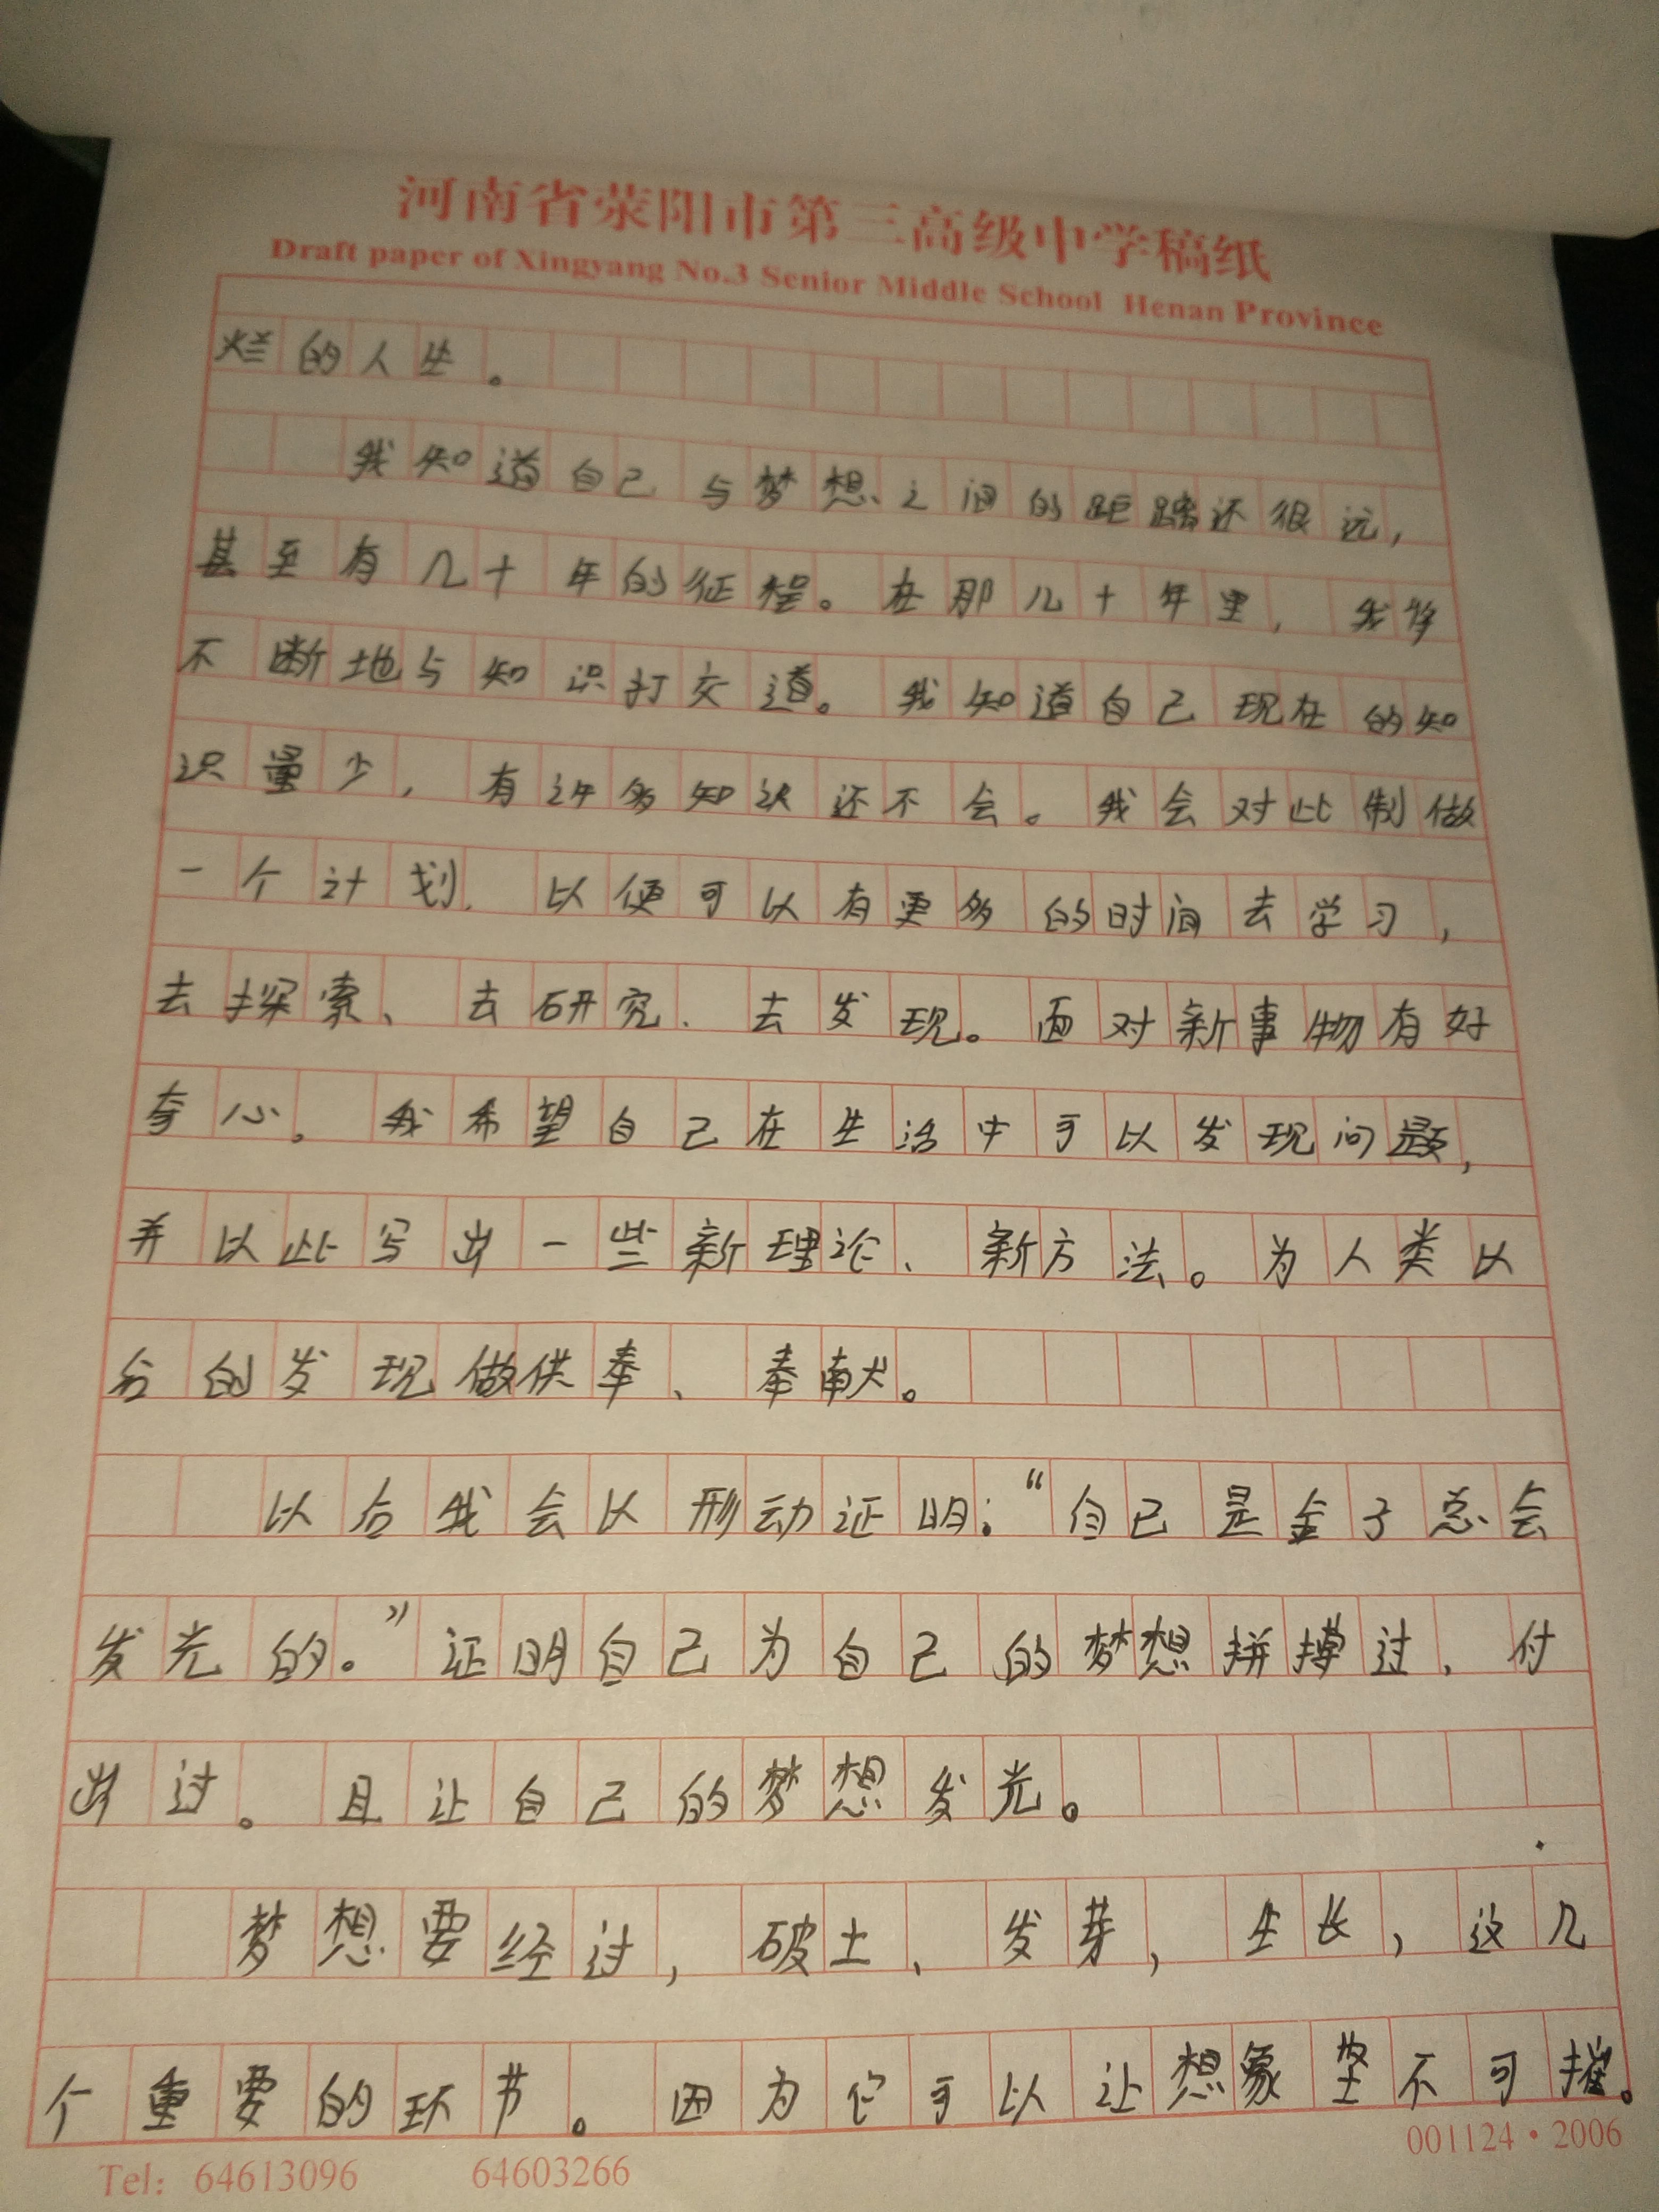 河南省荥阳市第三高级中学稿纸
Draft paper of Xingyang No.3 Senior Middle School Henan Province
烂的人生。
我知道自己与梦想之间的距离还很远，
甚至有几十年的征程。在那几十年里，我将
不断地与知识打交道。我知道自己现在的知
识量少，有许多知识还不会。我会对此制做
一个计划，以便可以有更多的时间去学习，
去探索、去研究、去发现。面对新事物有好
奇心。我希望自己在生活中可以发现问题，
并以此写出一些新理论、新方法。为人类以
后的发现做供奉、奉献。
以后我会以形动证明：“自己是金子总会
发光的。”证明自己为自己的梦想拼搏过，付
出过。且让自己的梦想发光。
梦想要经过，破土、发芽，生长，这几
个重要的环节。因为它可以让想象坚不可摧。
Tel: 64613096 64603266
001124·2006